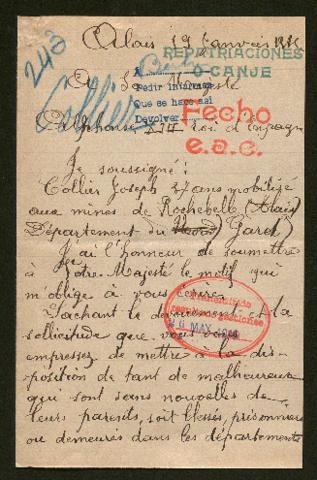 Alais 19 Janvier
243
REPATRIACIONES
O CANJE
A Sa Majesté
Collier
A
Pedir informes
Que se hace así
Devolver
Fecho
e.a.c.
Alphonse XIII roi d'Espagne
Je soussigné :
Collier Joseph 27 ans mobilisé
aux mines de Rochebelle (Alais)
Département du Gard)
J'ai l'honneur de soumettre
à Votre Majesté le motif qui
m'oblige à vous écrire.
Sachant le dévouement et la
sollicitude que vous vous
empressez de mettre à la dis-
position de tant de malheureux
qui sont sans nouvelles de
leurs parents, soit blessés, prisonniers
ou demeurés dans les départements
6 MAY